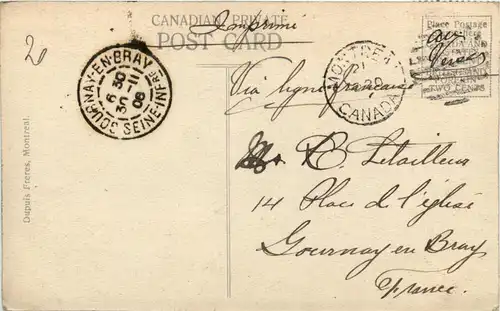 CANADIAN PRIVATE
POST CARD
Imprimé
Via ligne française
MONTREAL
21
CANADA
Place Postage
TWO CENTS
au
Verso
GOURNAY-EN-BRAY
6 30
30 -11
08
SEINE-INFRE
R. Letailleur
14 Place de l'église
Gournay en Bray
France
Dupuis Freres, Montreal.